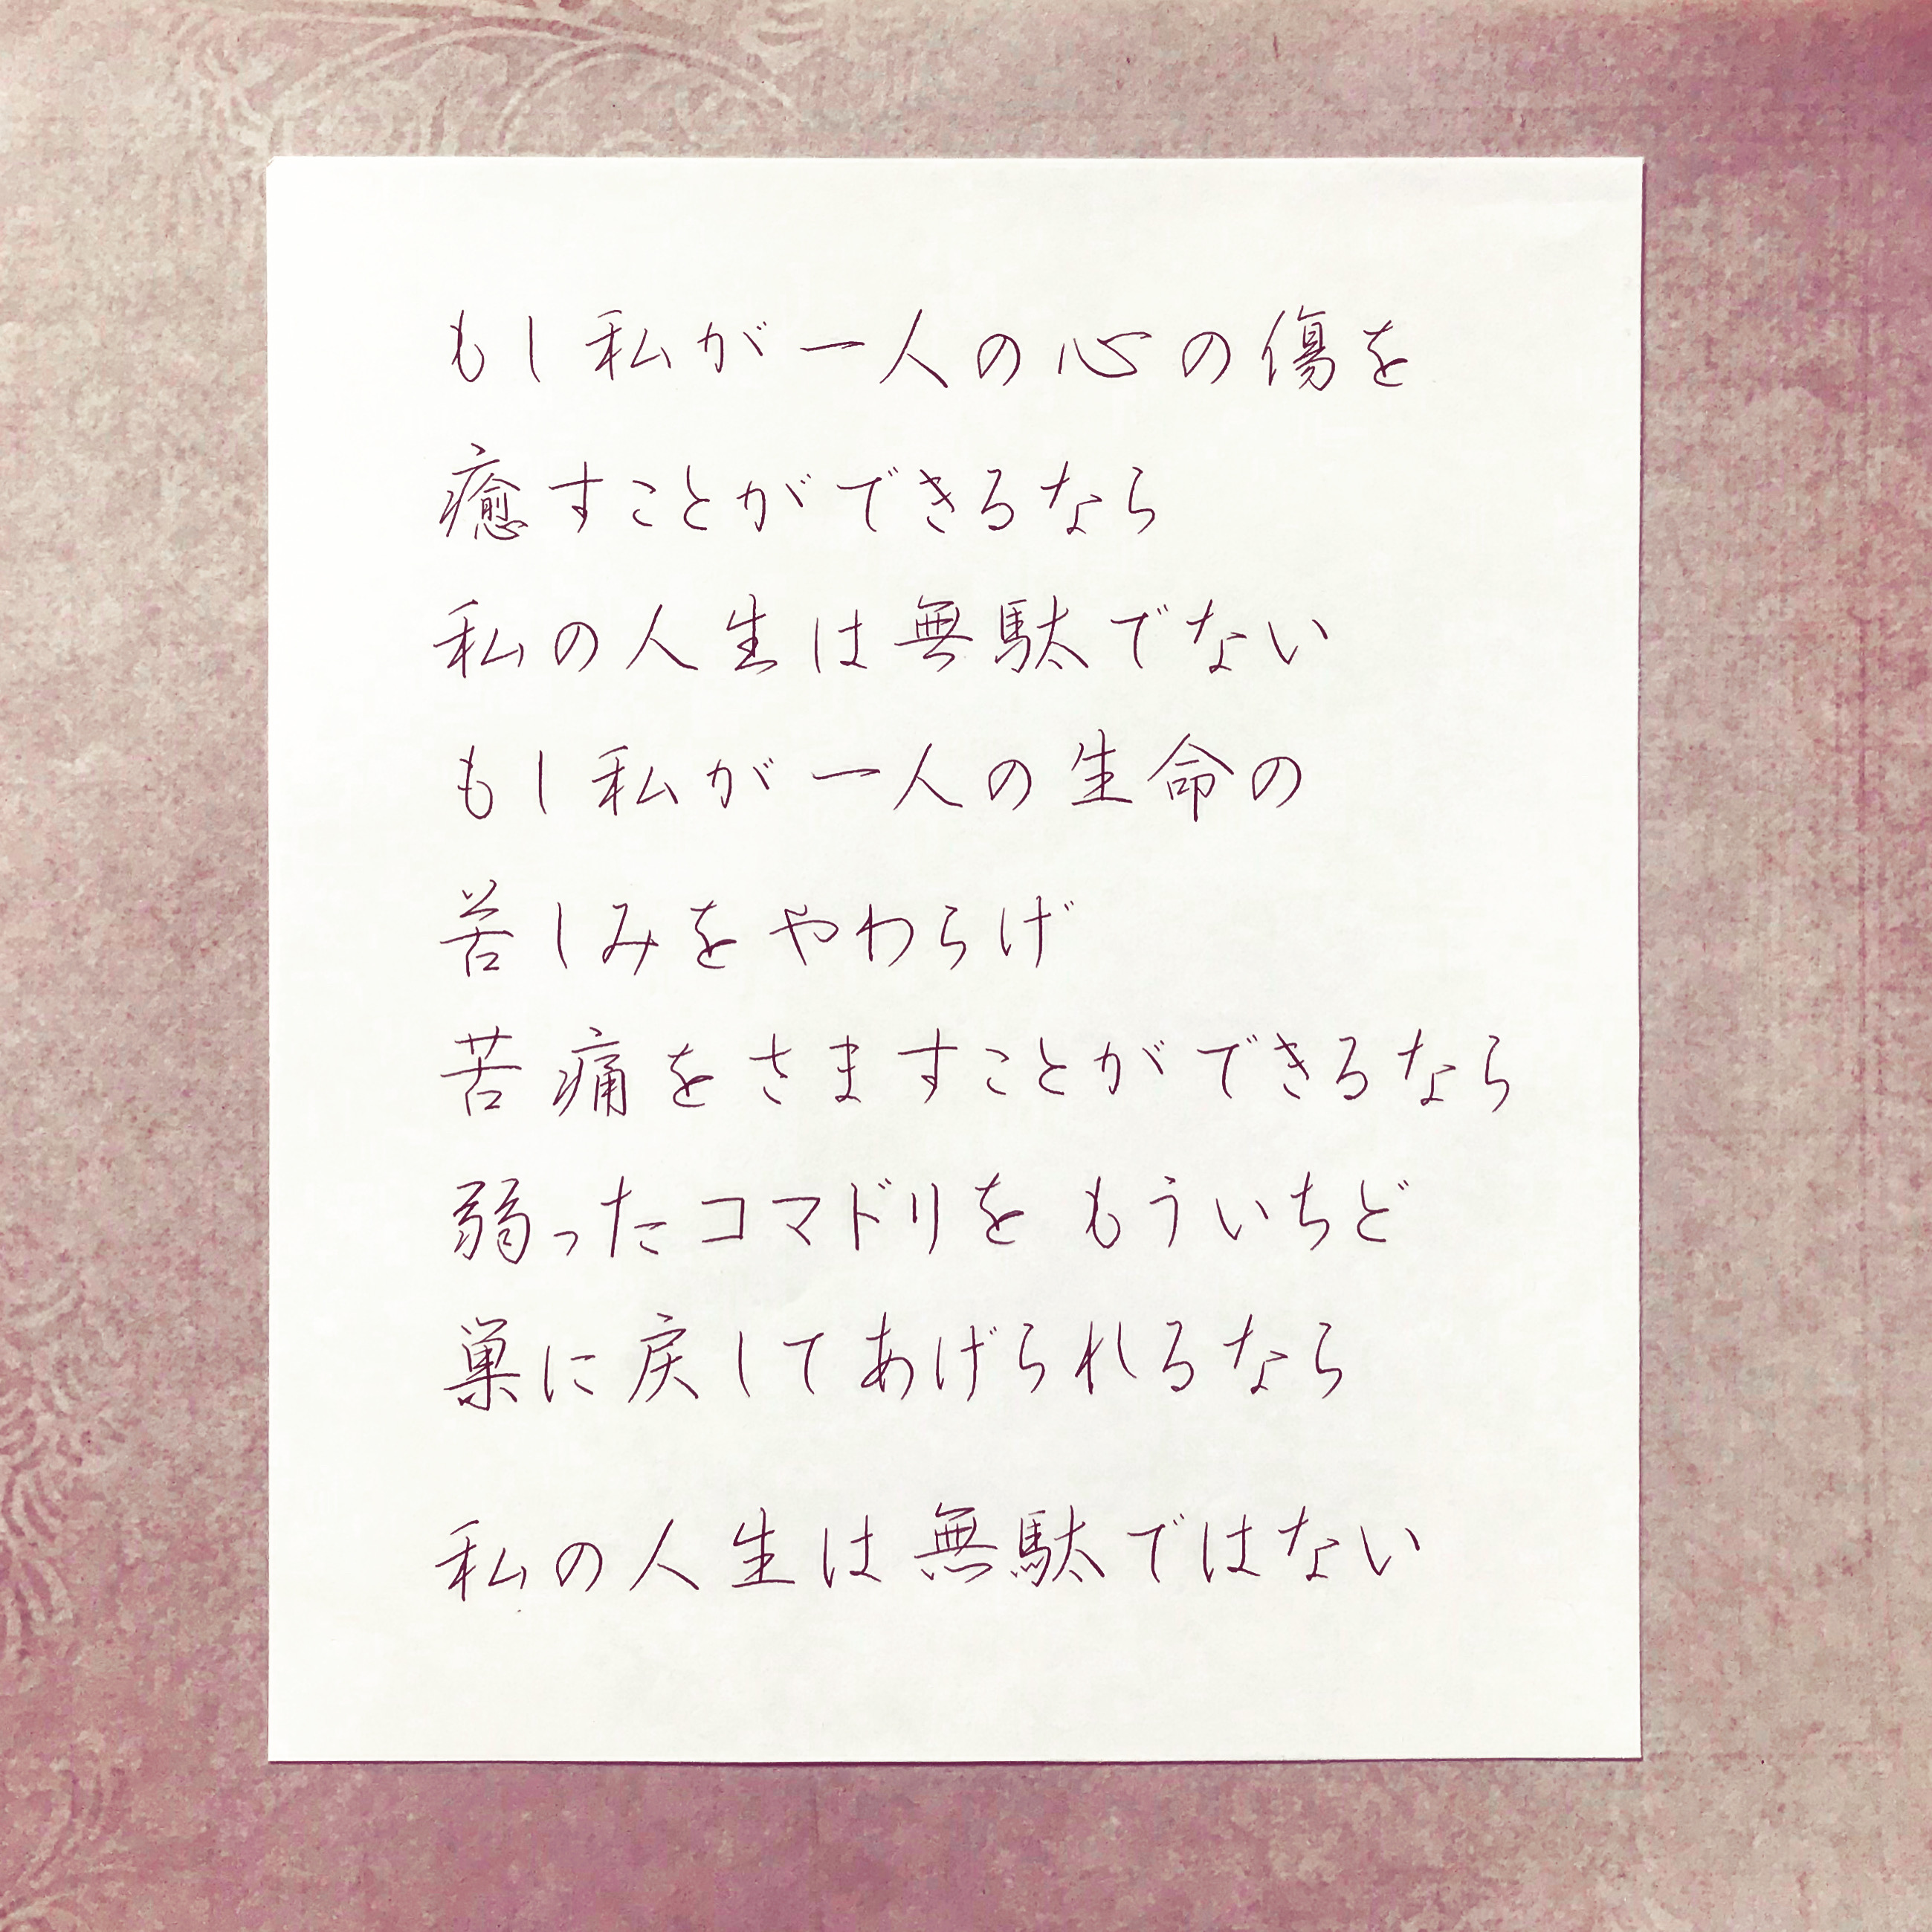 もし私が一人の心の傷を
癒すことができるなら
私の人生は無駄でない
もし私が一人の生命の
苦しみをやわらげ
苦痛をさますことができるなら
弱ったコマドリを もういちど
巣に戻してあげられるなら
私の人生は無駄ではない